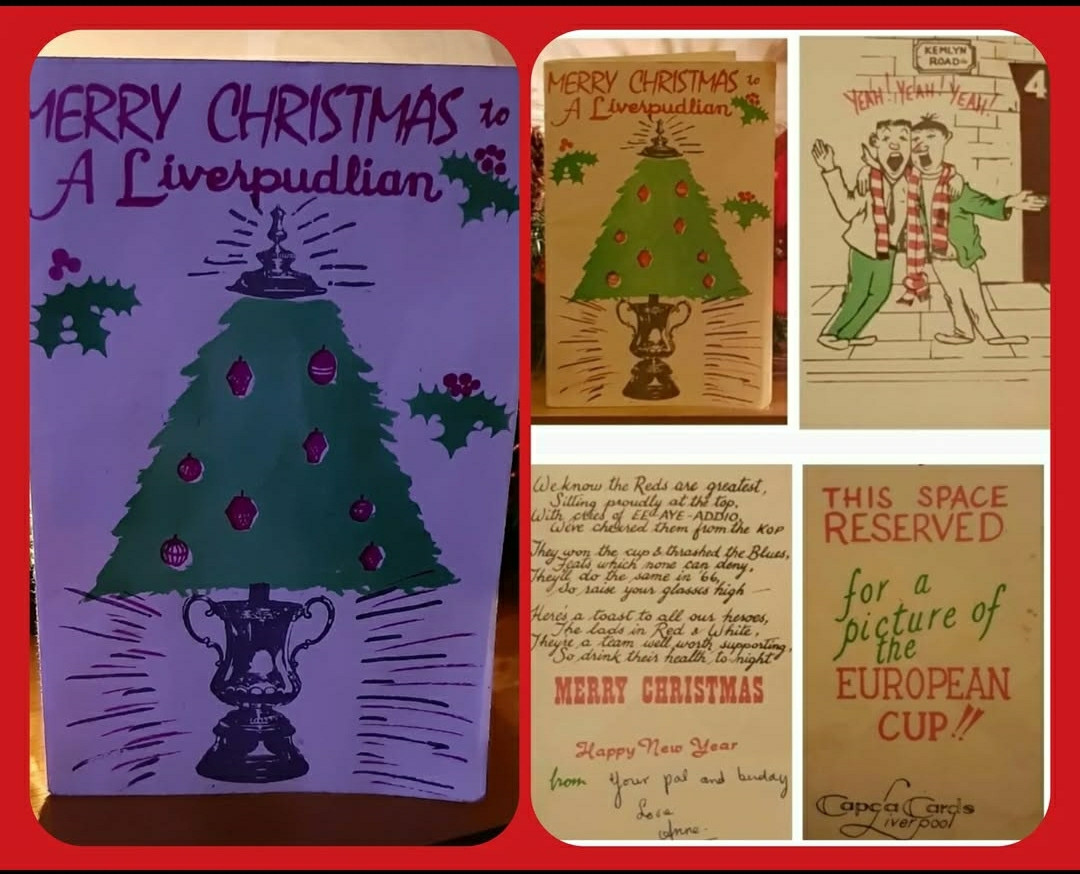 MERRY CHRISTMAS to
A Liverpudlian
MERRY CHRISTMAS to
A Liverpudlian
KEMLYN
ROAD
YEAH! YEAH! YEAH!
4
We know the Reds are greatest,
Sitting proudly at the top,
With cries of EE-AYE-ADDIO,
We've cheered them from the KOP
They won the cup & thrashed the Blues,
Feats which none can deny,
They'll do the same in '66,
So raise your glasses high —
Here's a toast to all our heroes,
The lads in Red & White,
They're a team well worth supporting,
So drink their health, to-night
MERRY CHRISTMAS
Happy New Year
from your pal and buddy
Love
Anne.
THIS SPACE
RESERVED
for a
picture of
the
EUROPEAN
CUP!!
Capça Cards
Liverpool